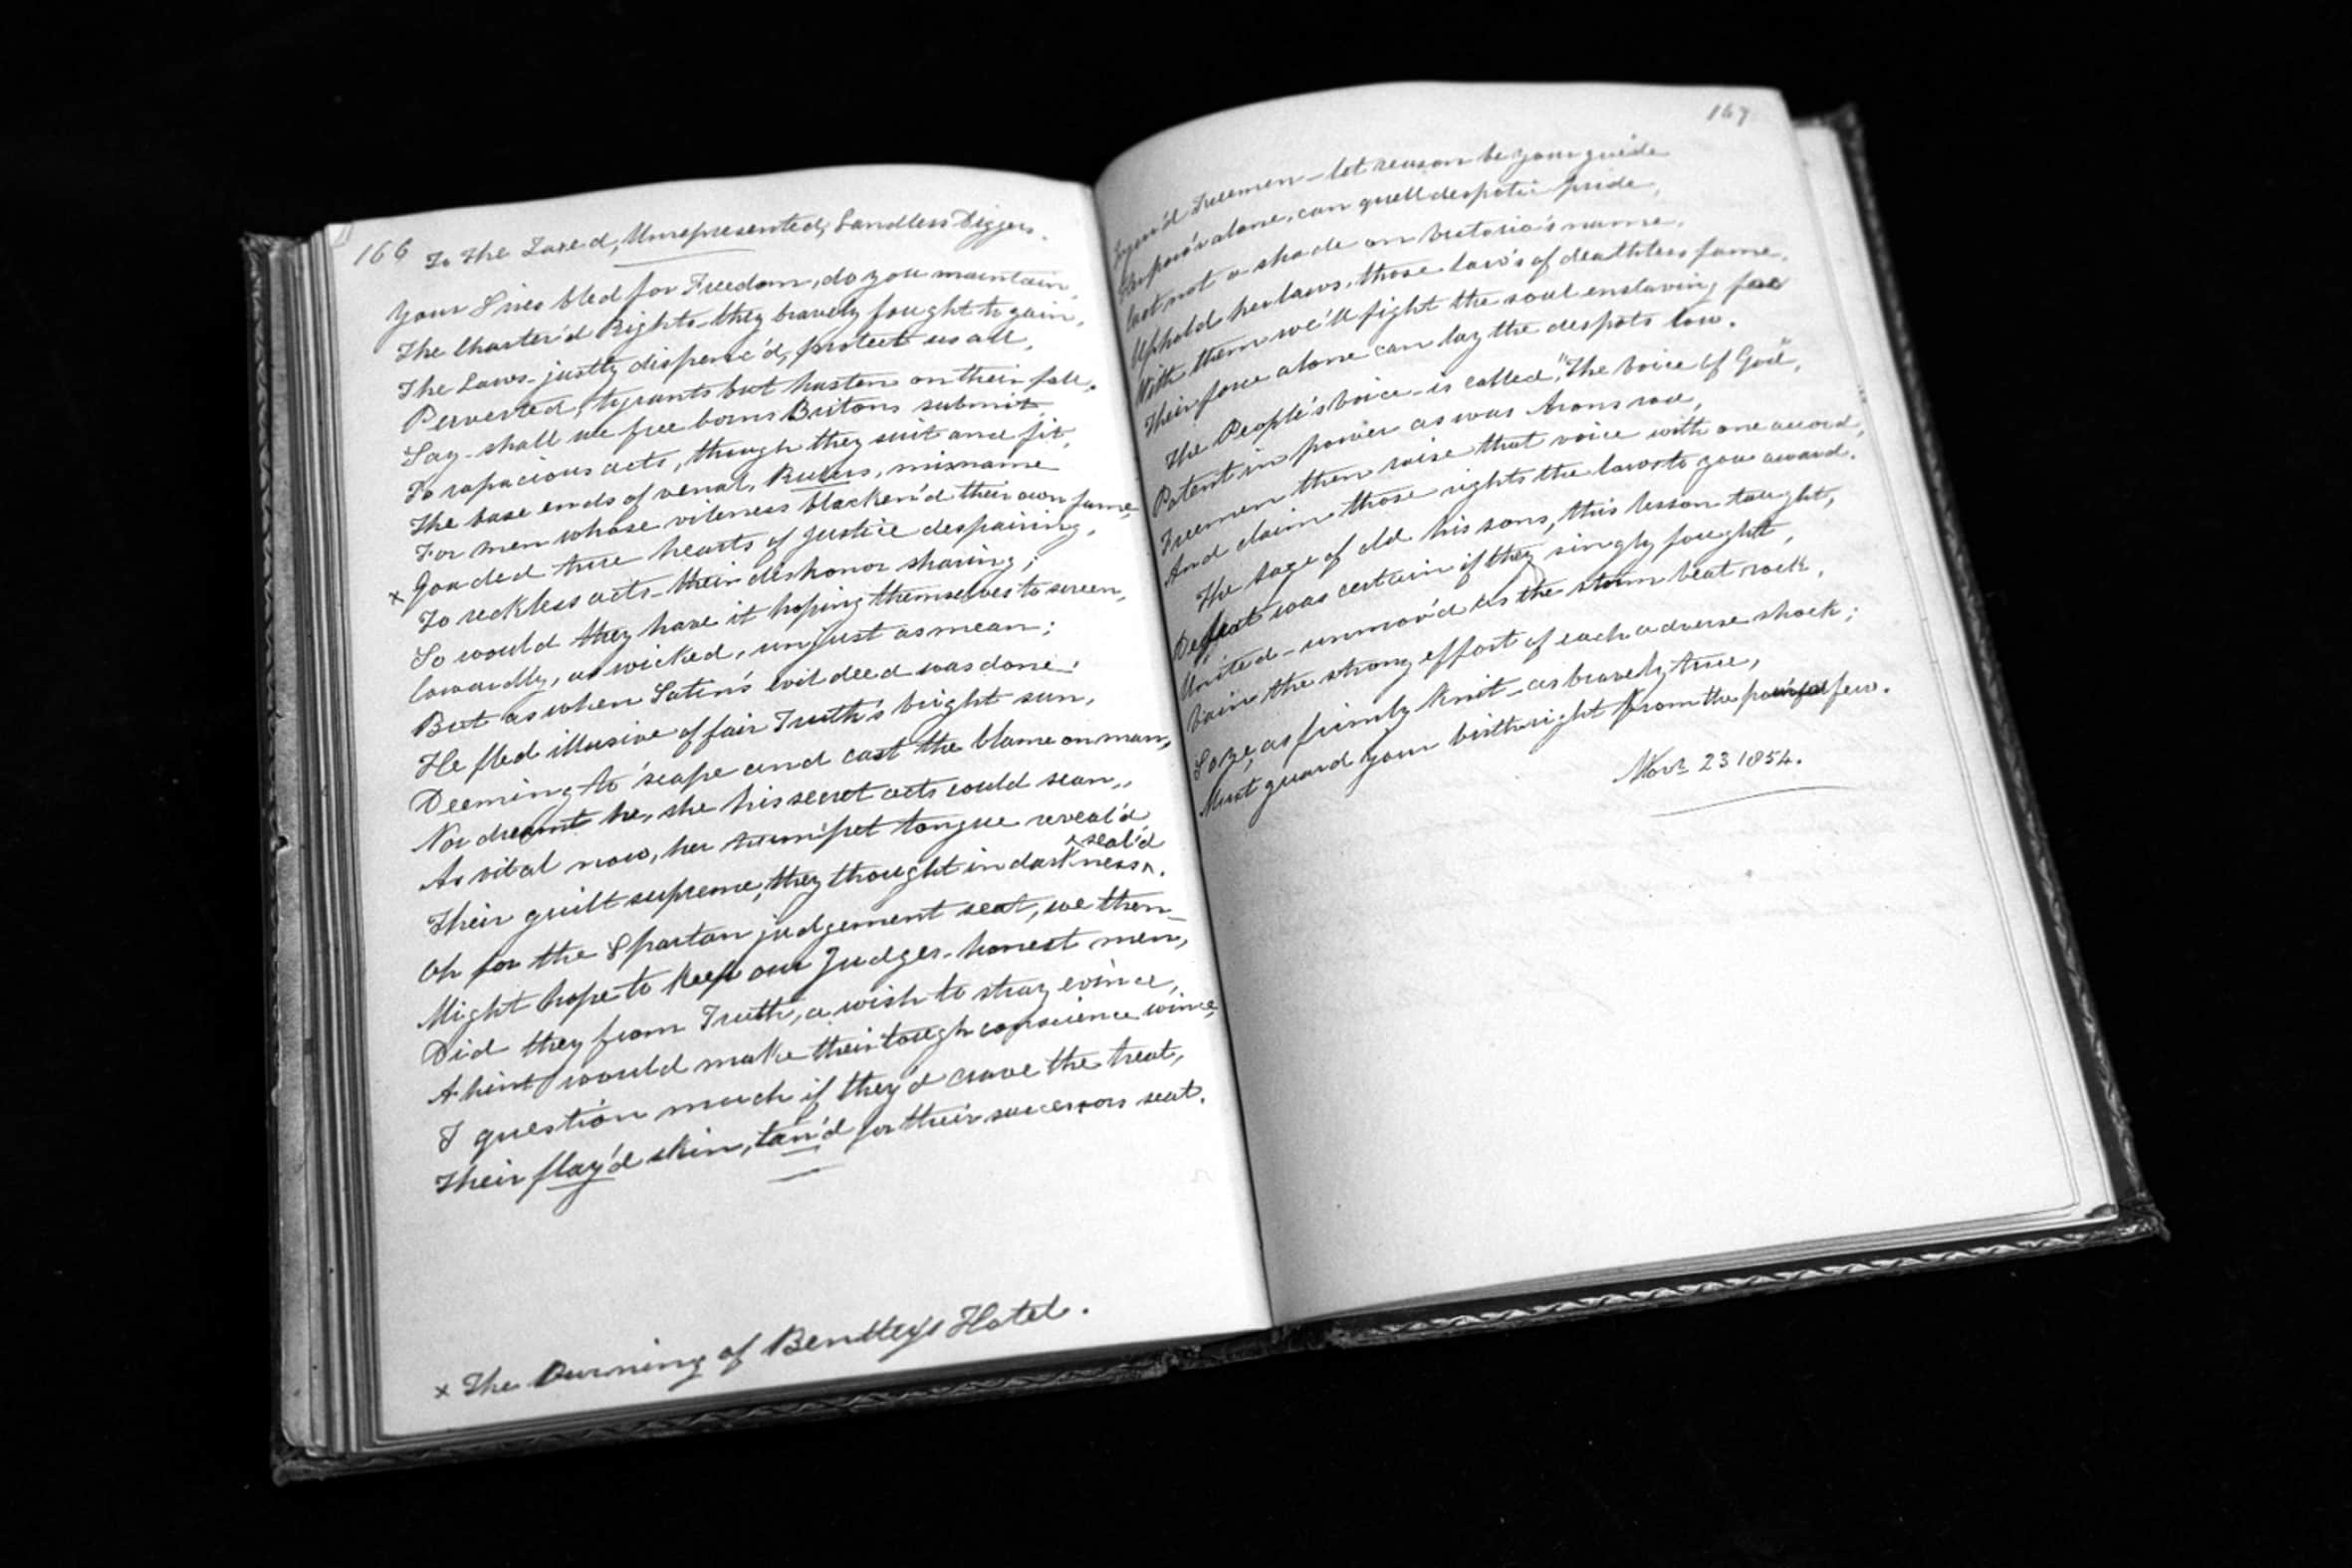 166 To The Taxed, Unrepresented, Landless Diggers.
Your Sires bled for Freedom, do you maintain,
The Charter'd Rights they bravely fought to gain,
The Laws justly dispenc'd, protect us all,
Perverted, tyrants but hasten on their fall.
Say shall we free born Britons submit
To rapacious acts, though they suit and fit,
The base ends of venal, Rulers, misname
For men whose vileness blacken'd their own fame,
x Goaded true hearts of justice despairing,
To reckless acts their dishonor sharing;
So would they have it hoping themselves to screen,
Cowardly, as wicked, unjust as mean;
But as when Satin's evil deed was done,
He fled illusive of fair Truth's bright sun,
Deeming to 'scape and cast the blame on man,
Nor dreamt he, she his secret acts could scan,
As vital now, her trumpet tongue reveal'd
Their guilt supreme, they thought in darkness ^ seal'd.
Oh for the Spartan judgement seat, we then
Might hope to keep our Judges honest men,
Did they from Truth, a wish to stray evince,
A hint would make their tough conscience wince,
I question much if they'd crave the treat,
Their flay'd skin, tan'd for their successors seat.
x The Burning of Bentleys Hotel.
167
Freemen let reason be your guide
alone, can quell despotic pride,
Cast not a shade on Victoria's name,
Uphold her laws, those laws of deathless fame,
With them we'll fight the soul enslaving foe
Their force alone can lay the despots low.
The People's Voice is called, "The Voice of God",
Potent in power as was Arons rod,
Freemen then raise that voice with one accord,
And claim those rights the laws to you award.
The Sage of old his sons, this lesson taught,
Defeat was certain if they singly fought,
United unmov'd as the storm beat rock,
Vain the strong effort of each adverse shock;
So ye, as firmly knit as bravely true,
Must guard your birthright from the pow'rful few.
Novr 23 1854.